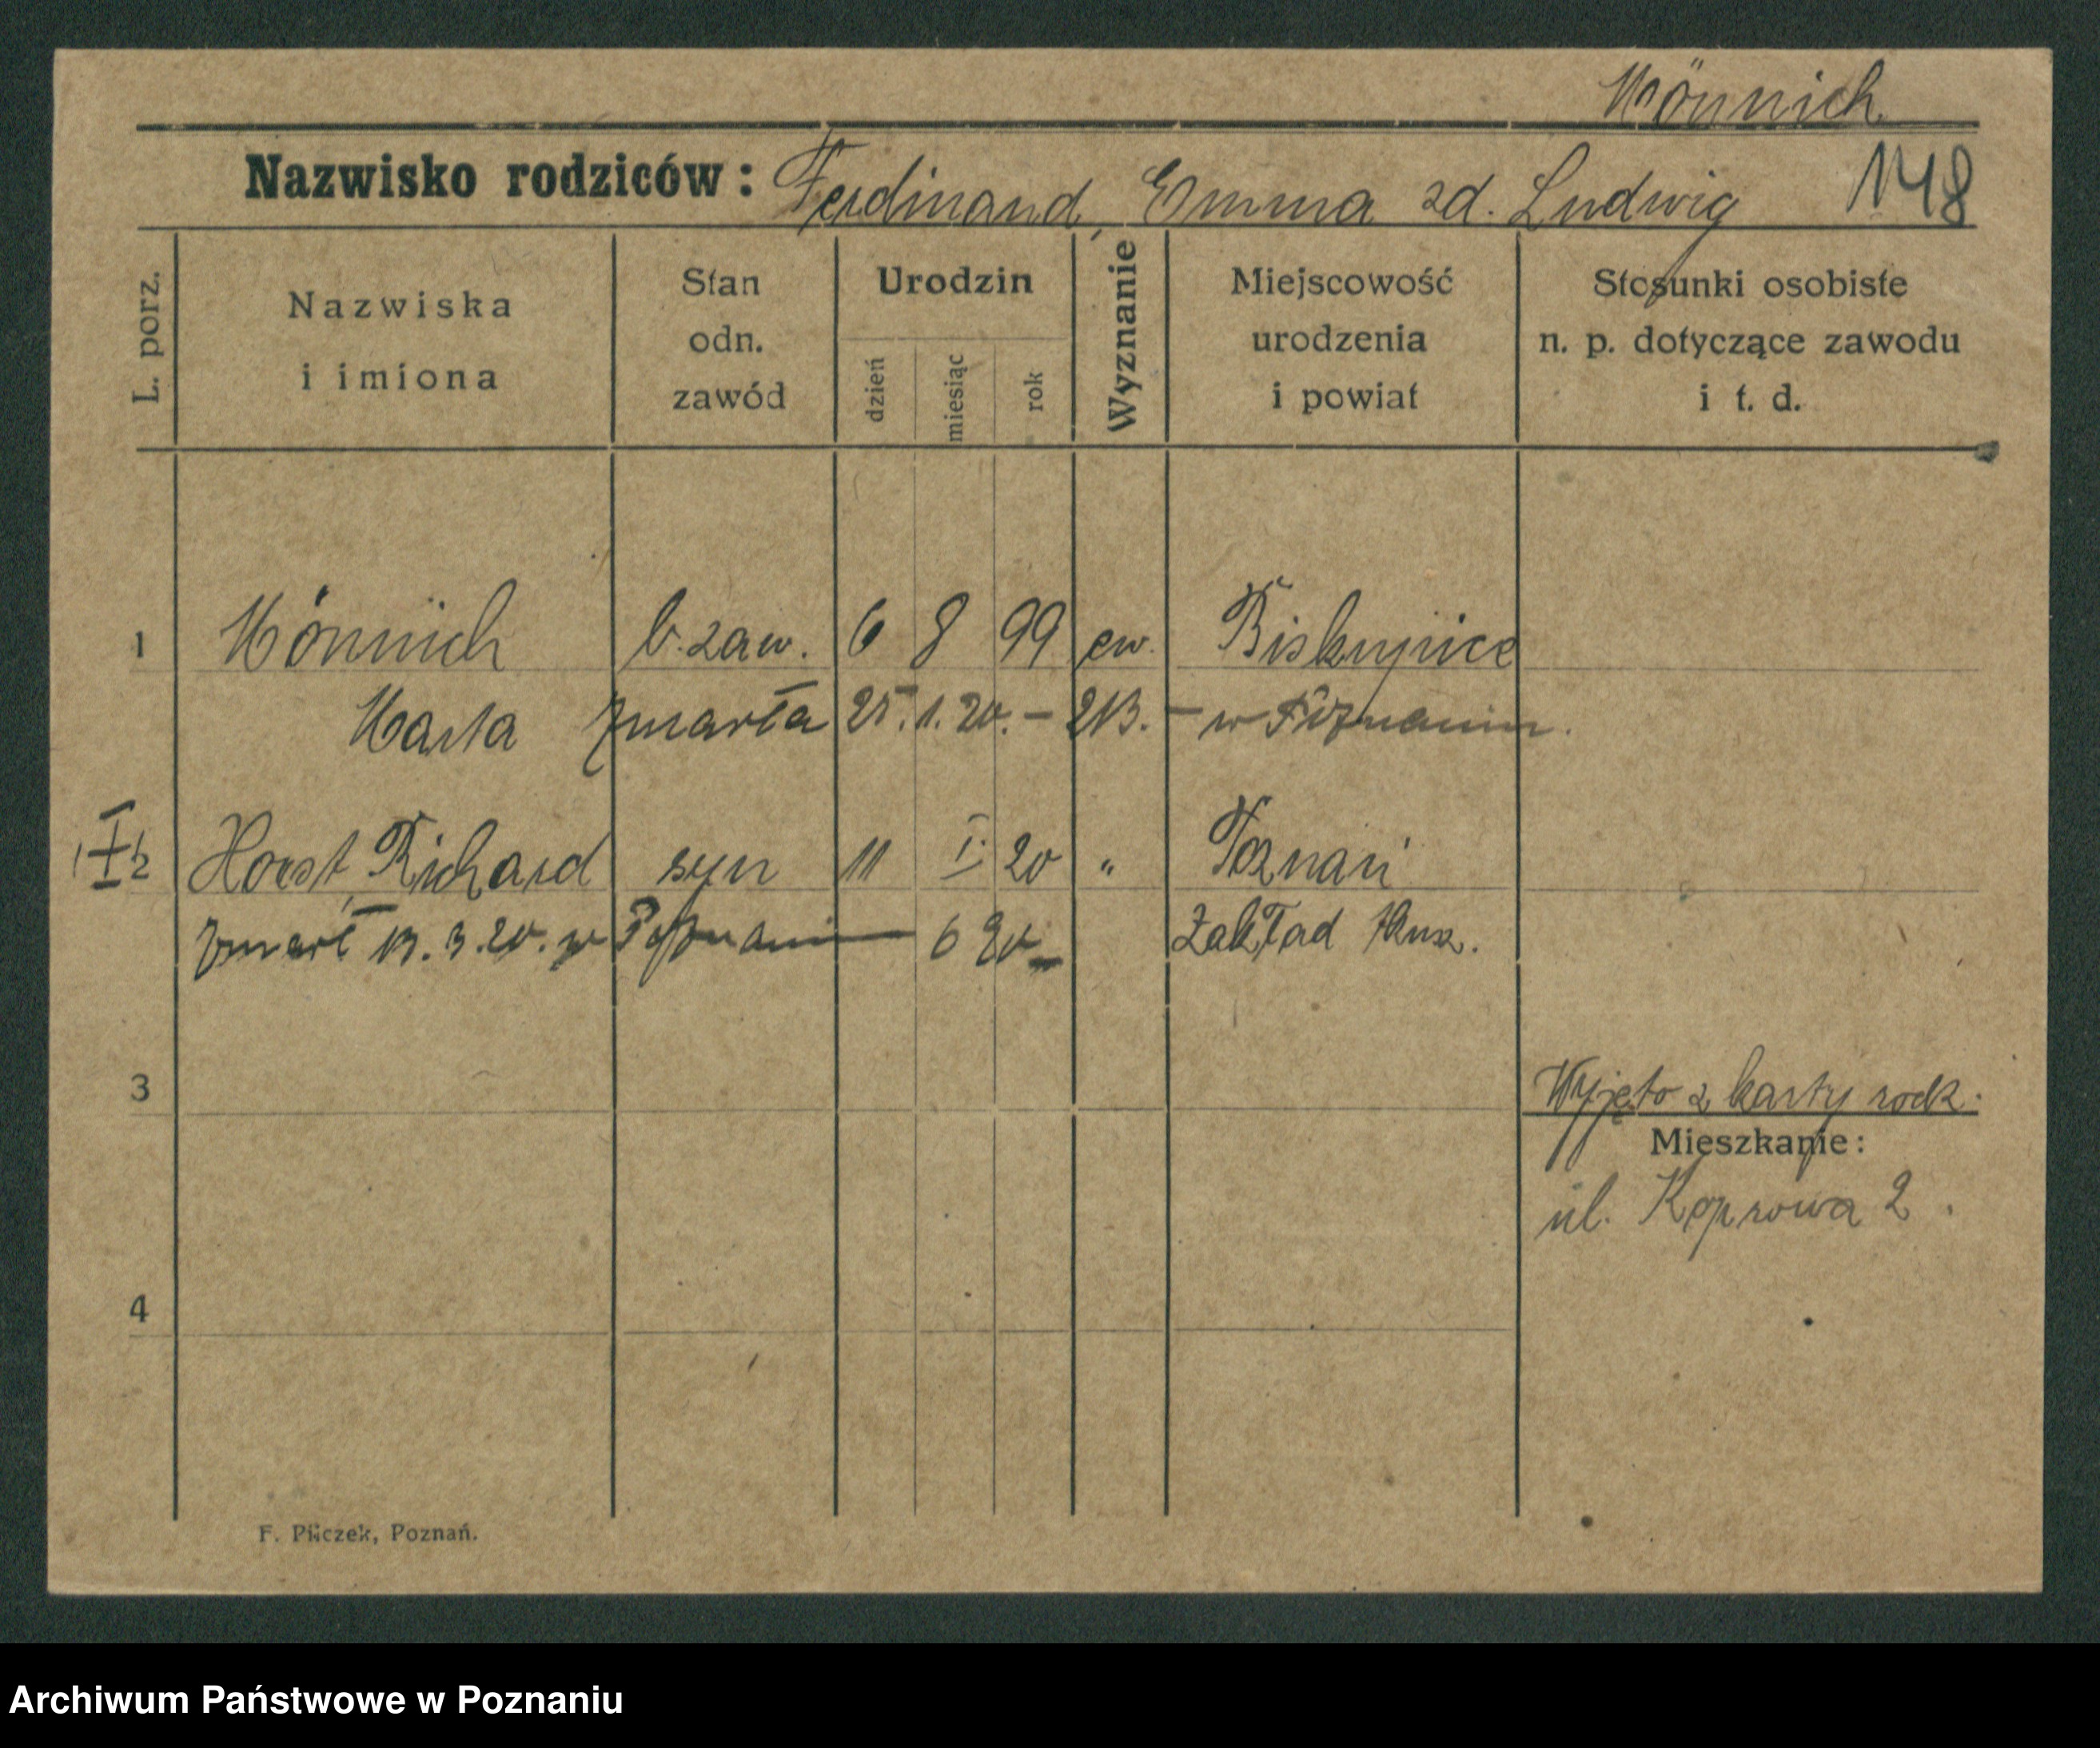 Mönnich
Nazwisko rodziców: Ferdinand, Emma zd. Ludwig 148
L. porz.
Nazwiska i imiona
Stan odn. zawód
Urodzin
dzień miesiąc rok
Wyznanie
Miejscowość urodzenia i powiat
Stosunki osobiste n. p. dotyczące zawodu i t. d.
1 Mönnich b. zaw. 6 8 99 ew. Biskupice
Marta zmarła 25. 1. 20. – 213. – w Poznaniu.
2 Horst, Richard syn 11 I. 20 " Poznań
zmarł 13. 3. 20. w Poznaniu — 6 20 Zakład
3
Wyjęto z karty rodz.
Mieszkanie:
ul. Koprowa 2.
4
F. Pilczek, Poznań.
Archiwum Państwowe w Poznaniu